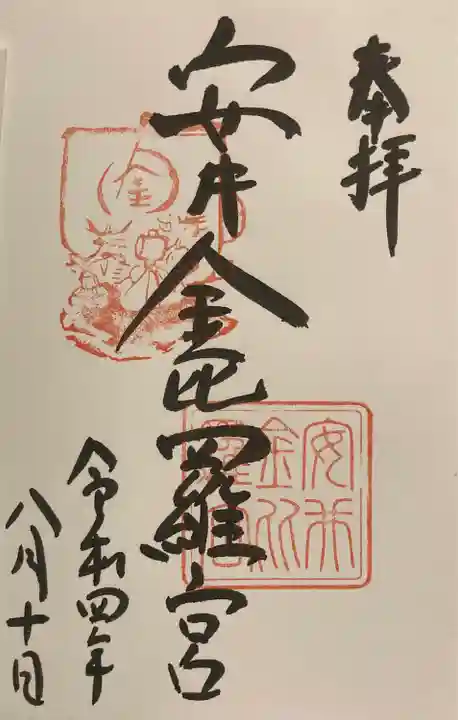 奉拝
安井金比羅宮
令和四年
八月十日
金
安井
金比
羅宮